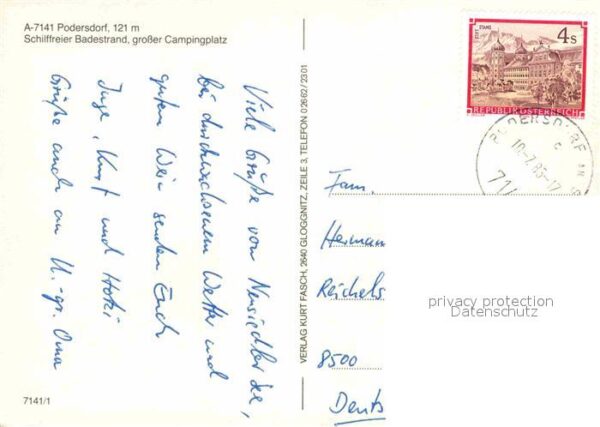 A-7141 Podersdorf, 121 m
Schilffreier Badestrand, großer Campingplatz
Viele Grüße vom Neusiedler See,
bei durchwachsenem Wetter und
gutem Wein senden Euch
Inge, Kurt und Hotzi
Grüße auch an U.-gr. Oma
7141/1
VERLAG KURT FASCH, 2640 GLOGGNITZ, ZEILE 3, TELEFON 0 26 62 / 23 01
STIFT STAMS
4 S
REPUBLIK ÖSTERREICH
PODERSDORF AM
10.-7.85-17
714
Fam.
Herman
Reichels
8500
Deuts
privacy protection
Datenschutz